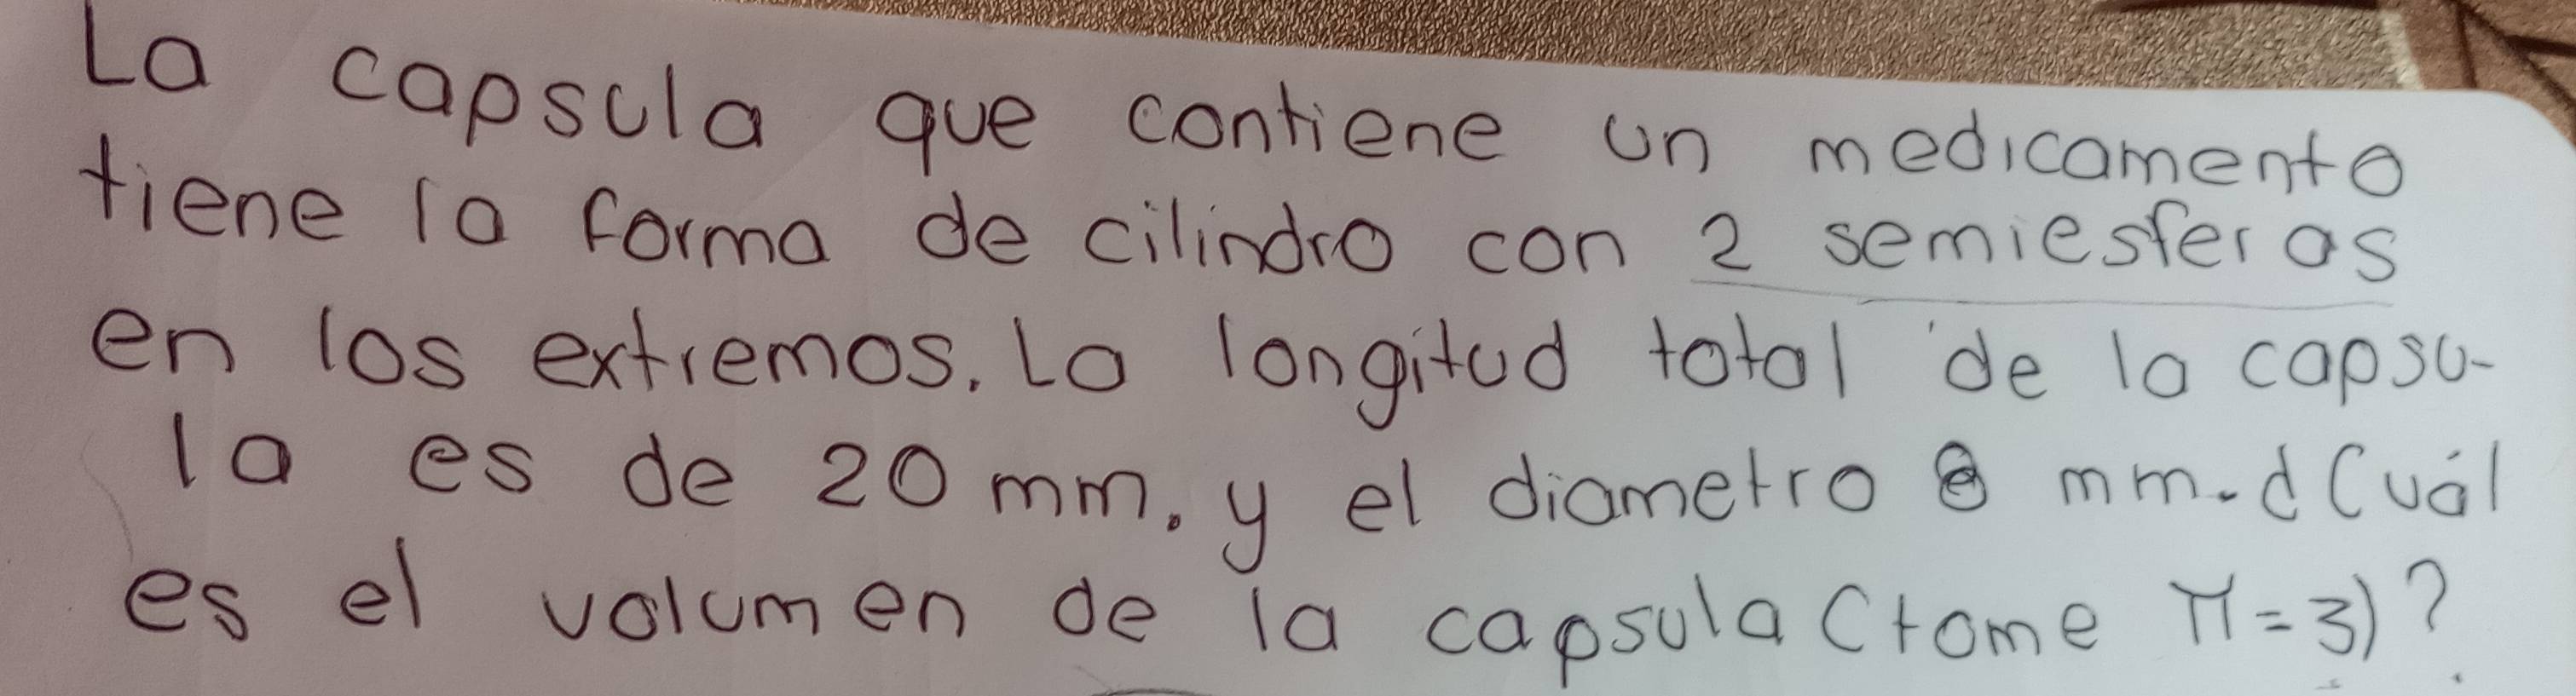 La capsula que contiene un medicamento
tiene la forma de cilindro con 2 semiesferas
en los extremos. La longitud total de la capsu-
la es de 20 mm. y el diametro 8 mm. ¿Cuál
es el volumen de la capsula (tome π=3)?